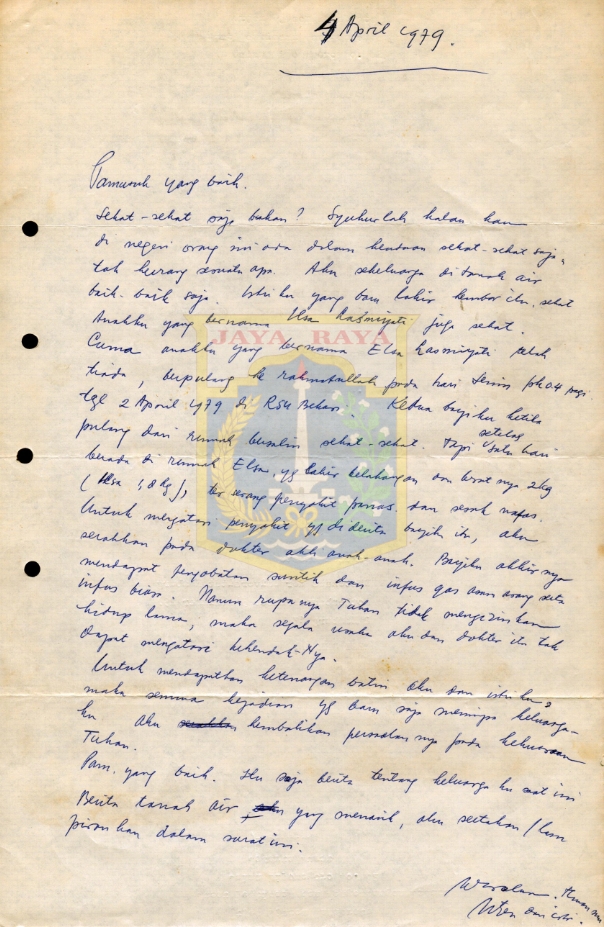 4 April 1979.
Pamusuk yang baik.
Sehat-sehat saja bukan? Syukurlah kalau kau
di negeri orang ini ada dalam keadaan sehat-sehat saja,
tak kurang sesuatu apa. Aku sekeluarga di tanah air
baik-baik saja. Istriku yang baru lahir kembar itu, sehat
Anakku yang bernama Ilsa Rasmiyati juga sehat.
JAYA RAYA
Cuma anakku yang bernama Elsa Rasmiyati telah
tiada, berpulang ke rahmatullah pada hari Senin pk 04 pagi
tgl 2 April 1979 di RSU Bekasi. Kedua bayiku ketika
pulang dari rumah bersalin sehat-sehat. Tapi setelah satu hari
berada di rumah Elsa yg lahir belakangan dan beratnya 2 kg
(Ilsa 1,8 kg), terserang penyakit panas dan sesak nafas.
Untuk mengatasi penyakit yg diderita bayiku itu, aku
serahkan pada dokter ahli anak-anak. Bayiku akhirnya
mendapat pengobatan suntik dan infus gas asam arang serta
infus biasa. Namun rupanya Tuhan tidak mengizinkan
hidup lama, maka segala usaha aku dan dokter itu tak
dapat mengatasi kehendak-Nya.
Untuk mendapatkan ketenangan batin aku dan istriku,
maka semua kejadian yg baru saja menimpa keluarga-
ku aku kembalikan persoalannya pada kekuasaan
Tuhan.
Pam. yang baik. Itu saja berita tentang keluarga ku saat ini
Berita tanah air yang menarik, aku sertakan/lam
pirankan dalam surat ini.
Wassalam.
dan istri.